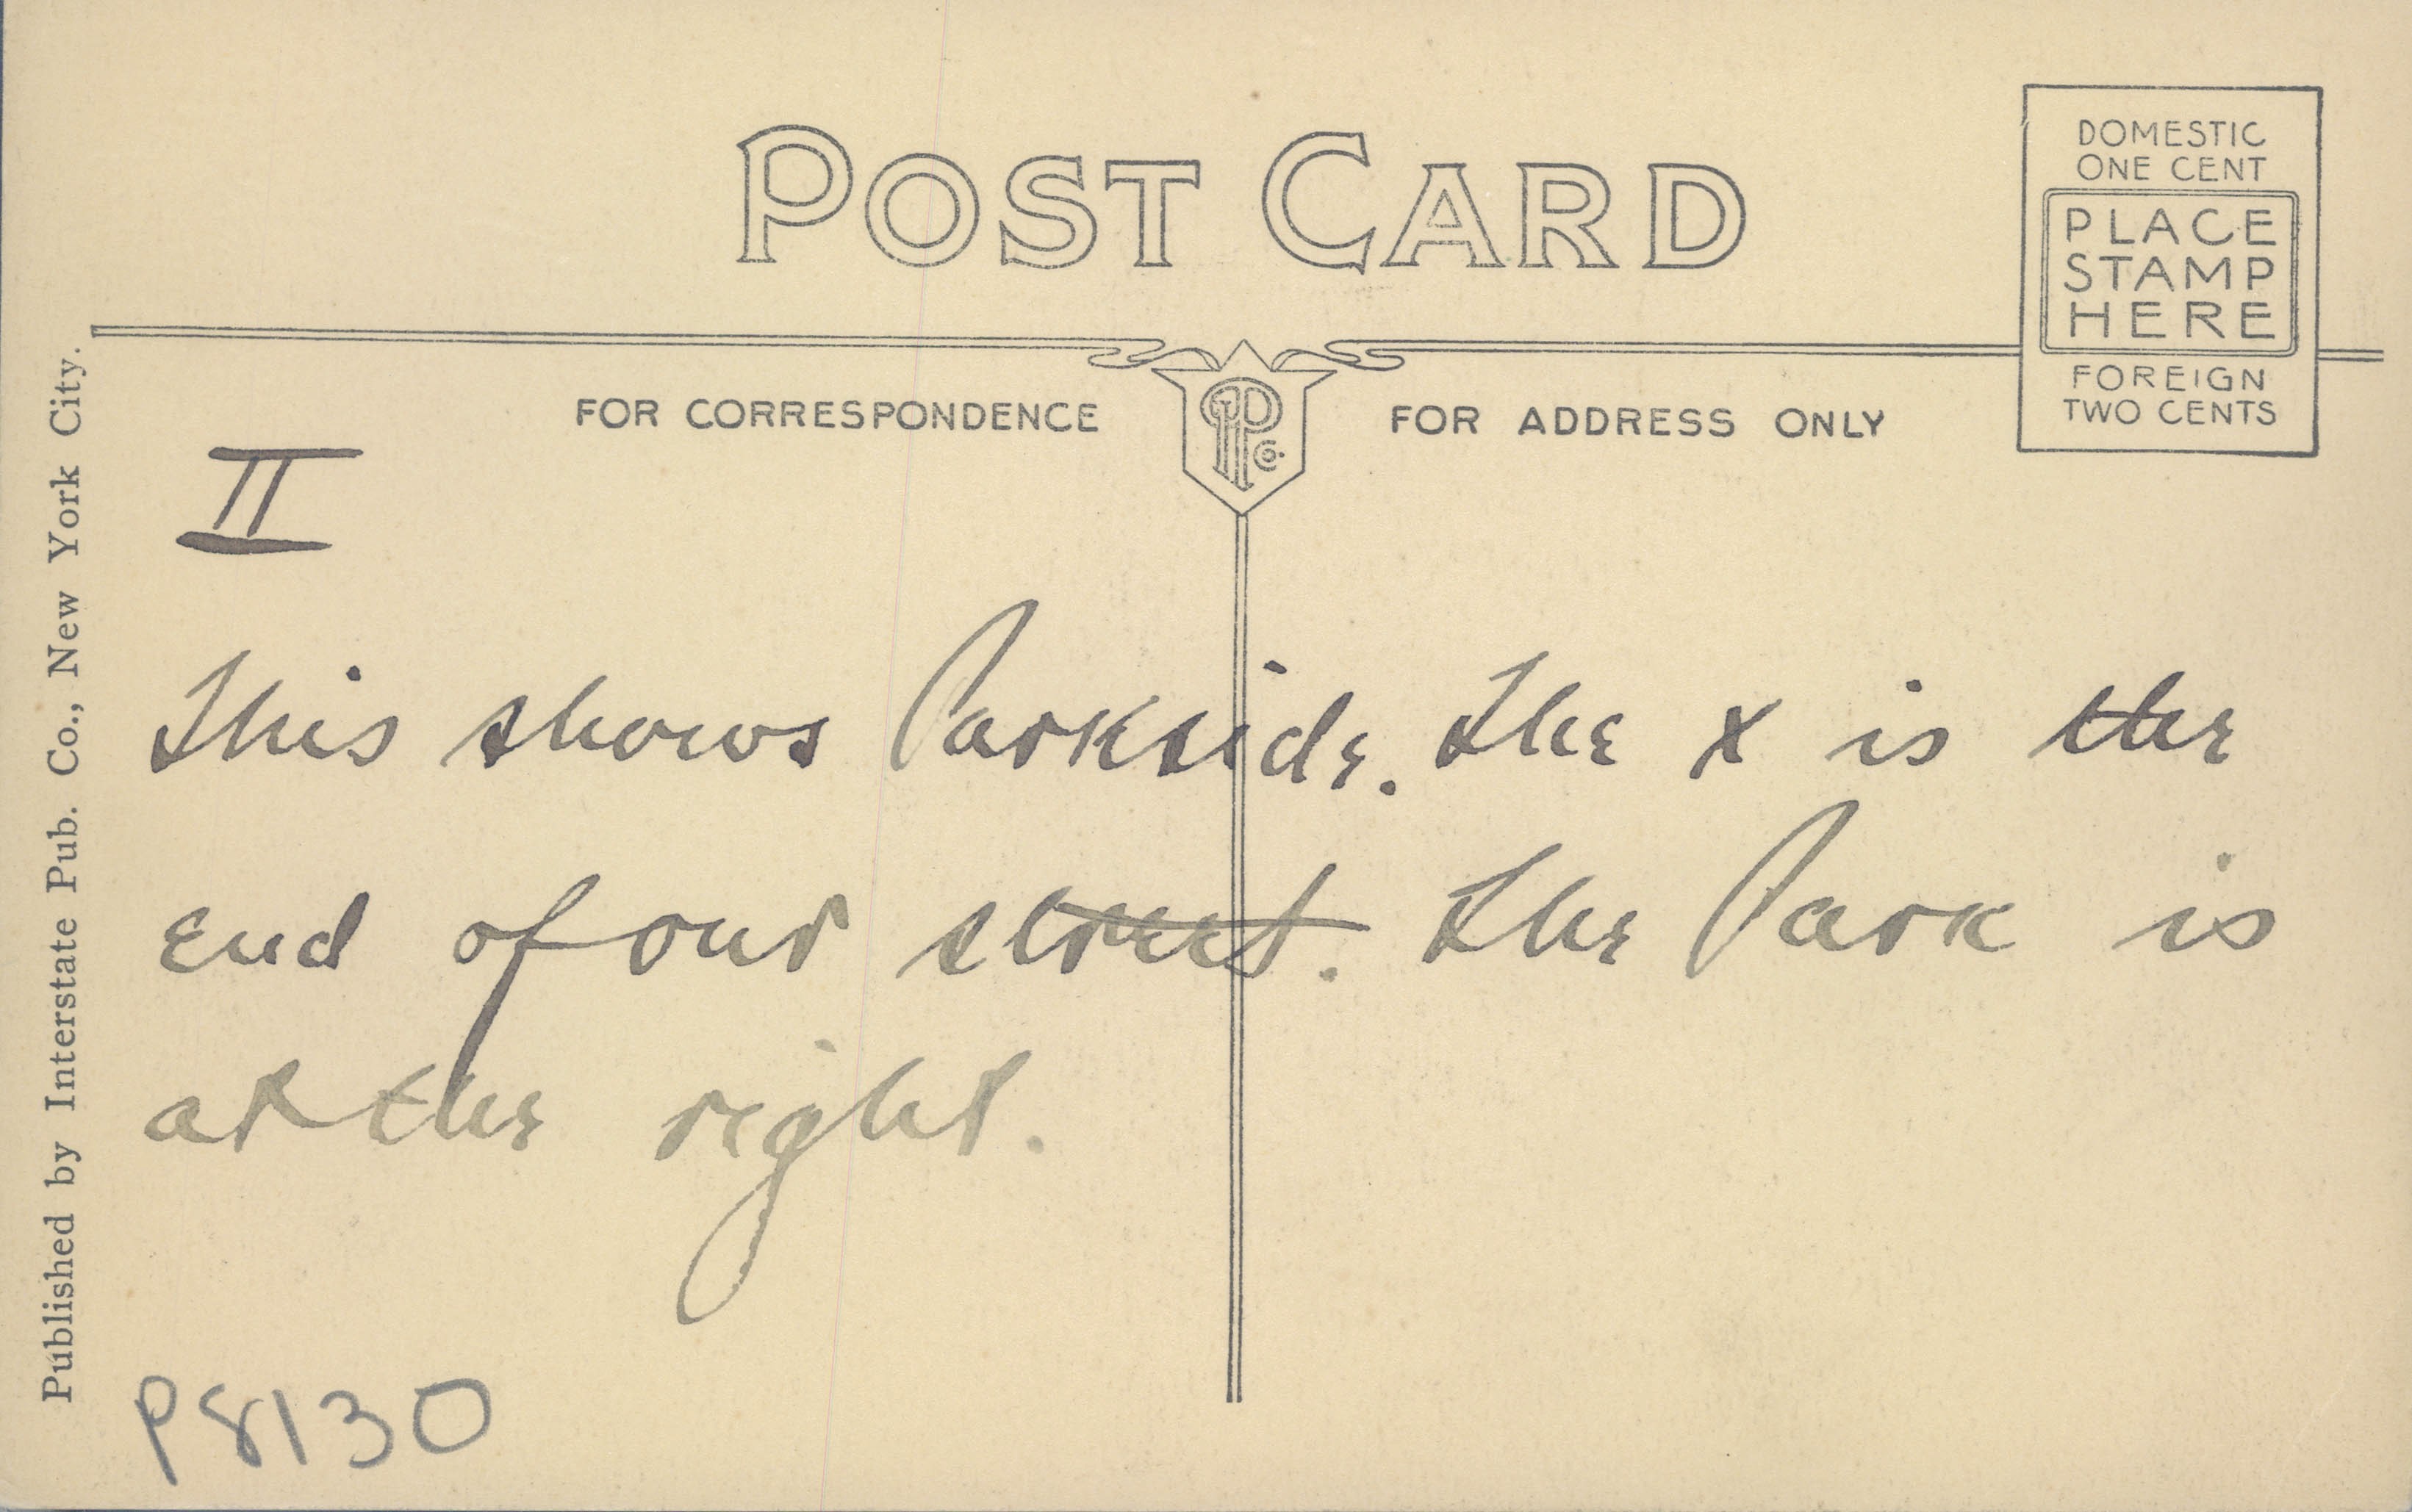 POST CARD
DOMESTIC
ONE CENT
PLACE
STAMP
HERE
FOREIGN
TWO CENTS
FOR CORRESPONDENCE
FOR ADDRESS ONLY
PCo.
II
This shows Parkside. The x is the
end of our street. The Park is
at the right.
P8130
Published by Interstate Pub. Co., New York City.